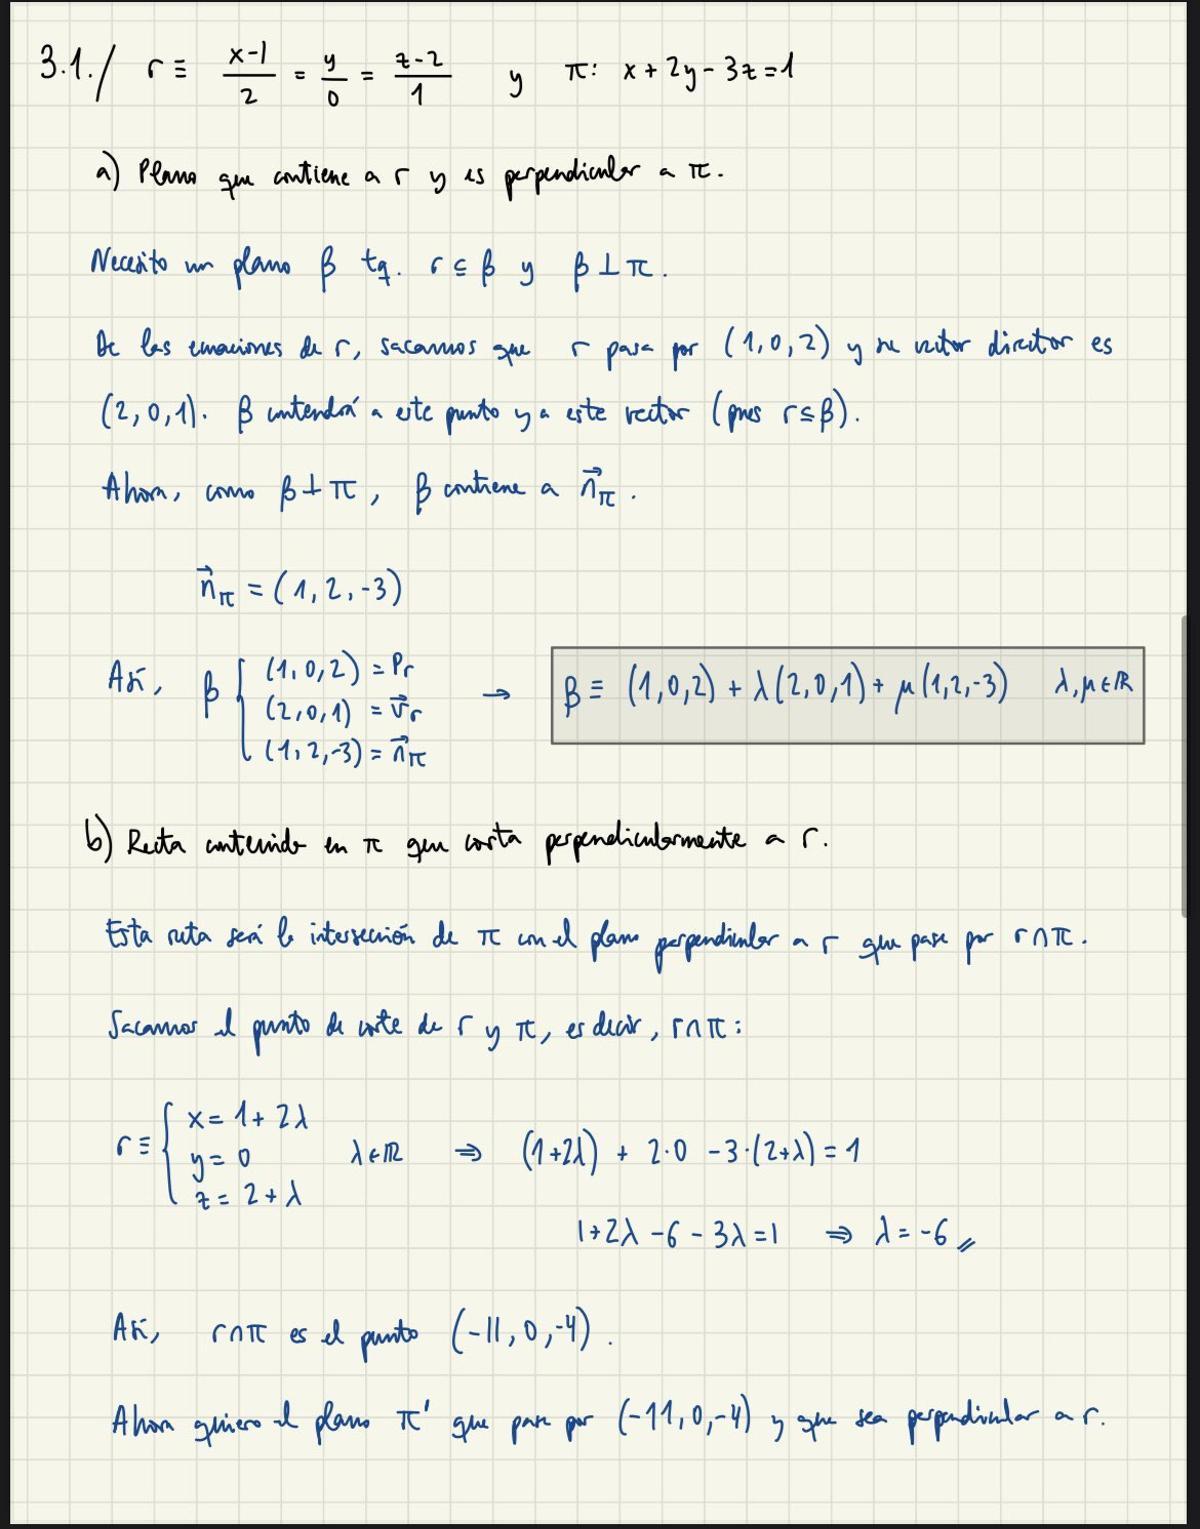 3.1./ r ≡ (x-1)/2 = y/0 = (z-2)/1 y π: x + 2y - 3z = 1
a) Plano que contiene a r y es perpendicular a π.
Necesito un plano β tq. r ⊆ β y β ⊥ π.
De las ecuaciones de r, sacamos que r pasa por (1,0,2) y su vector director es
(2,0,1). β contendrá a este punto y a este vector (pues r ⊆ β).
Ahora, como β ⊥ π, β contiene a n⃗π.
n⃗π = (1,2,-3)
Así, β { (1,0,2) = Pr
(2,0,1) = v⃗r
(1,2,-3) = n⃗π
→ β ≡ (1,0,2) + λ(2,0,1) + μ(1,2,-3) λ,μ ∈ ℝ
b) Recta contenida en π que corta perpendicularmente a r.
Esta recta será la intersección de π con el plano perpendicular a r que pase por r∩π.
Sacamos el punto de corte de r y π, es decir, r∩π:
r ≡ { x = 1 + 2λ
y = 0
z = 2 + λ
λ ∈ ℝ ⇒ (1+2λ) + 2·0 -3·(2+λ) = 1
1+2λ -6 - 3λ = 1 ⇒ λ = -6 //
Así, r∩π es el punto (-11,0,-4).
Ahora quiero el plano π' que pase por (-11,0,-4) y que sea perpendicular a r.